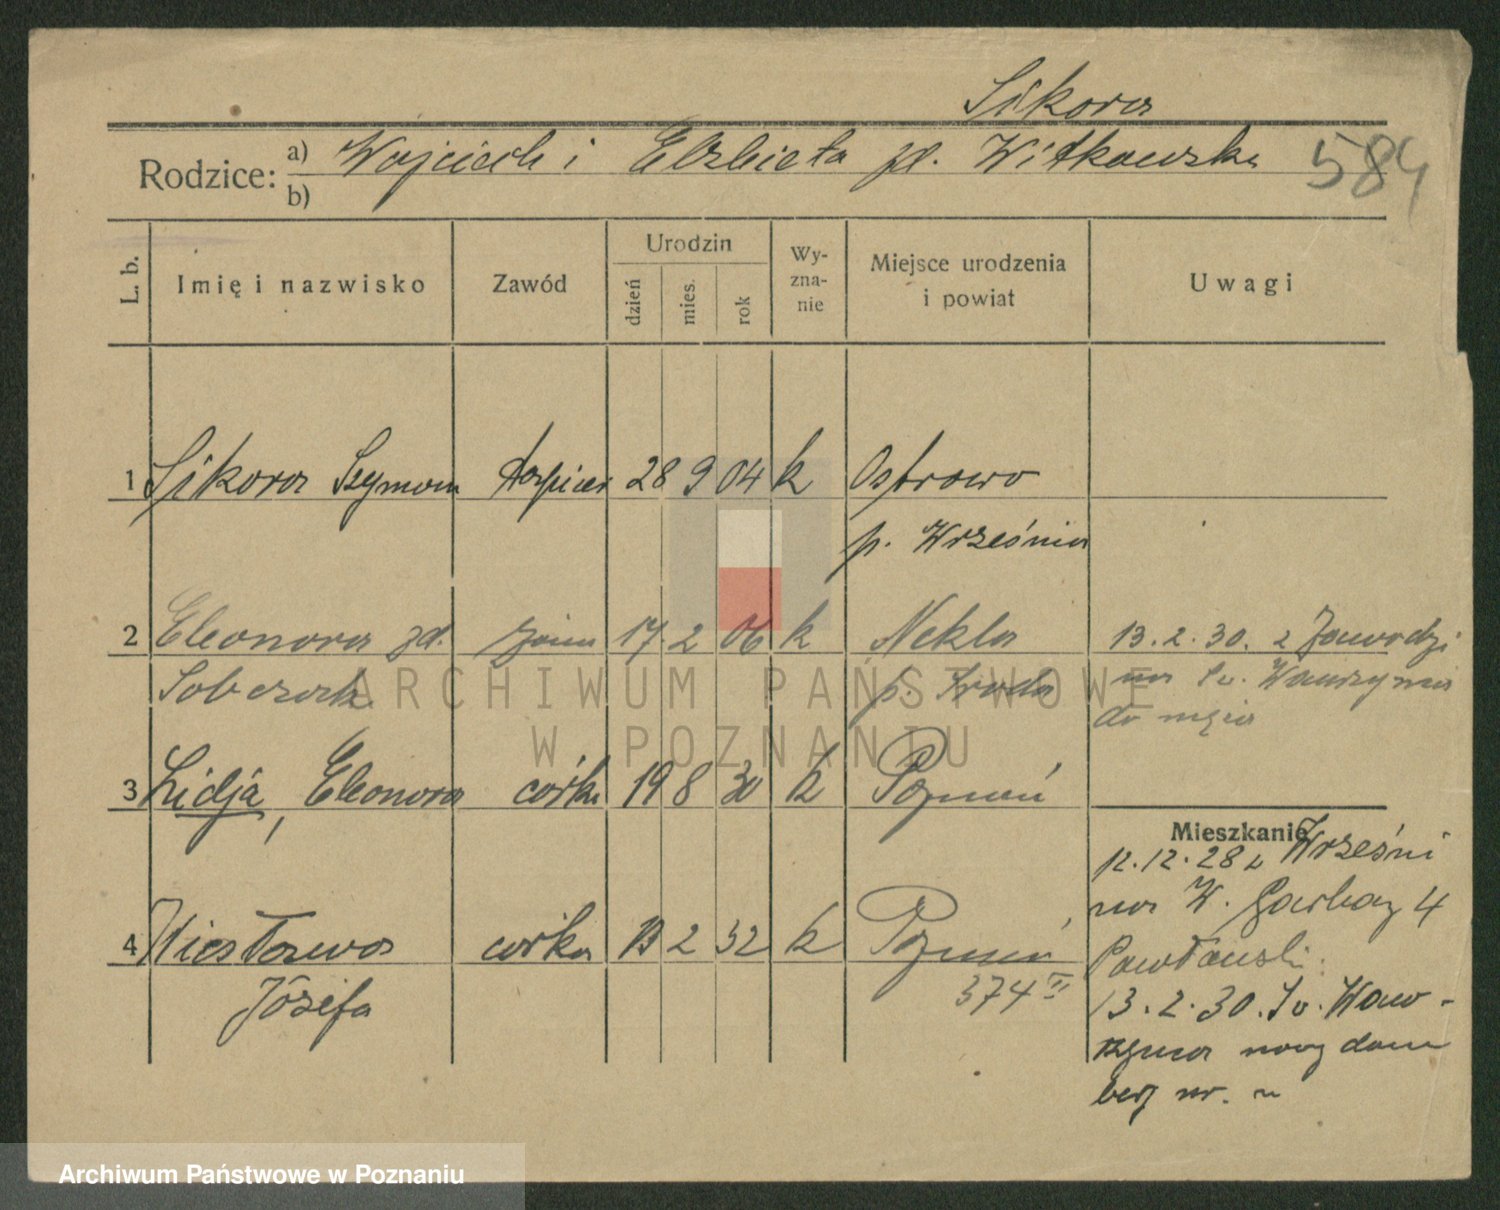 Sikora
Rodzice: a) Wojciech i Elżbieta zd. Witkowska
b)
584
L. b. Imię i nazwisko Zawód Urodzin dzień mies. rok Wy-zna-nie Miejsce urodzenia i powiat Uwagi
1 Sikora Szymon tapicer 28 9 04 k Ostrowo
p. Września
2 Eleonora zd. żona 17. 2 06 k Nekla 13. 2. 30. z Zawodzi
Sobczak p. Środa na Św. Wawrzyńca
do męża
3 Lidja, Eleonora córka 19 8 30 k Poznań
Mieszkanie
12. 12. 28 z Wrześni
na W. Garbary 4
4 Wiesława córka 13 2 32 k Poznań
374 II
Józefa
13. 2. 30. Św. Waw-
rzyńca nowy dom
bez nr.
ARCHIWUM PAŃSTWOWE
W POZNANIU
Archiwum Państwowe w Poznaniu